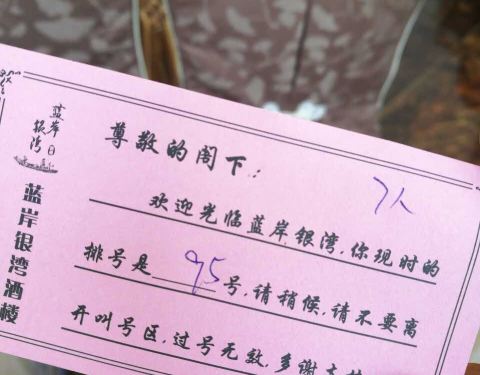 蓝岸
银湾
蓝岸银湾酒楼
尊敬的阁下:
7人
欢迎光临蓝岸银湾,你现时的
排号是95号,请稍候,请不要离
开叫号区,过号无效,多谢